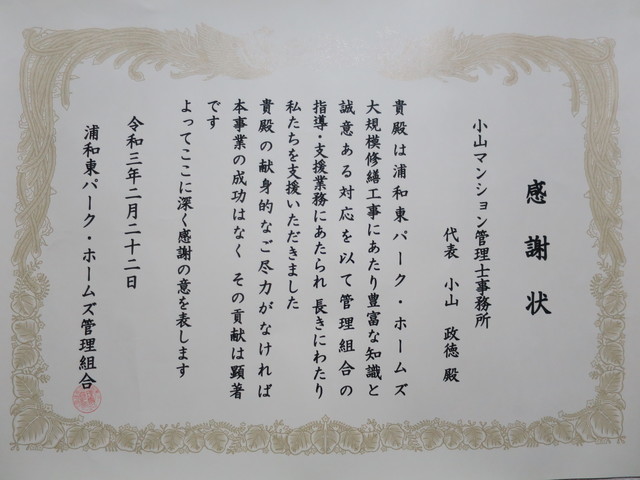 感謝状
小山マンション管理士事務所
代表 小山 政徳 殿
貴殿は浦和東パーク・ホームズ
大規模修繕工事にあたり豊富な知識と
誠意ある対応を以て管理組合の
指導・支援業務にあたられ 長きにわたり
私たちを支援いただきました
貴殿の献身的なご尽力がなければ
本事業の成功はなく その貢献は顕著
です
よってここに深く感謝の意を表します
令和三年二月二十二日
浦和東パーク・ホームズ管理組合